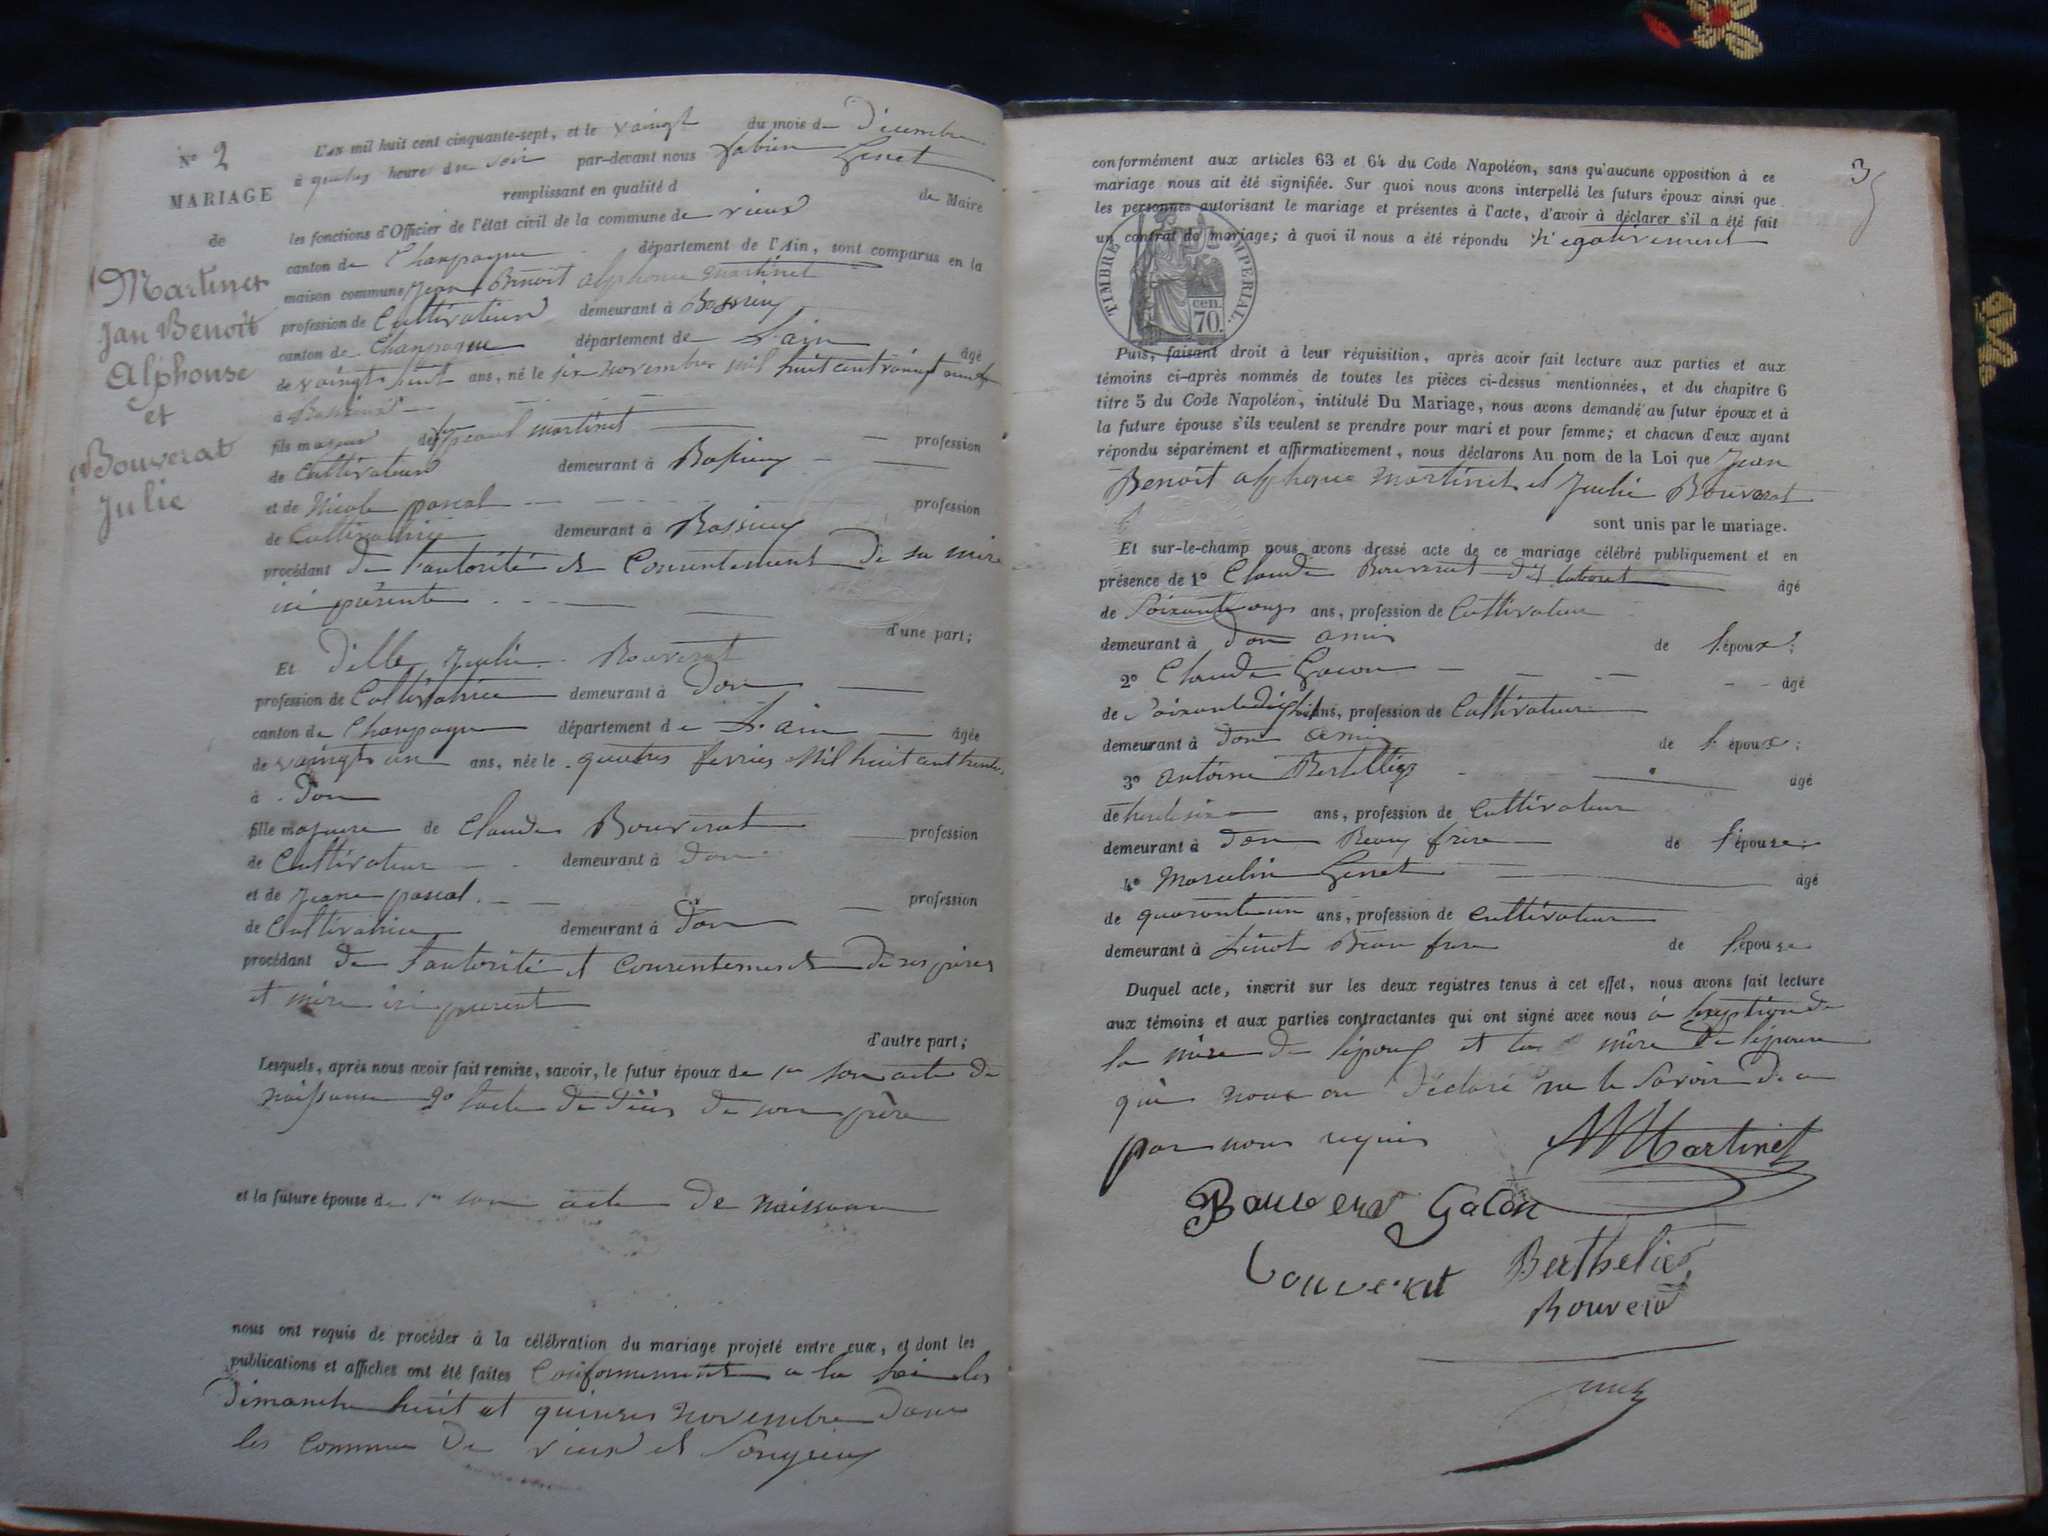 N° 2
MARIAGE
de
Martinet
Jan Benoit
Alphonse
et
Bouverat
Julie
L'an mil huit cent cinquante-sept, et le vaingt du mois de décembre
à quatres heures du soir par-devant nous fabien Genet
remplissant en qualité d de Maire
les fonctions d'Officier de l'état civil de la commune de vieux
canton de Champagne département de l'Ain, sont comparus en la
maison commune Jean Benoit alphonse martinet
profession de Cultivateur demeurant à Bassieu
canton de Champagne département de L'ain âgé
de vaingt huit ans, né le six novembre mil huit cent vaingt neuf
à Bassieux
fils majeur de feu martinet profession
de Cultivateur demeurant à Bassieu
et de Nicole pascal profession
de Cultivatrice demeurant à Bassieu
procédant de l'autorité et Consentement De sa mère
ici présente
d'une part;
Et d'elle Julie Bouverat
profession de Cultivatrice demeurant à don
canton de Champagne département de L'ain âgée
de vaingt un ans, née le quatres fevrier Mil huit cent trente
à don
fille majeure de Claude Bouverat profession
de Cultivateur demeurant à don
et de Jeane pascal profession
de Cultivatrice demeurant à don
procédant de l'autorité et Consentement De ses pères
et mère ici present
d'autre part;
Lesquels, après nous avoir fait remise, savoir, le futur époux de 1° son acte de
naissance 2° l'acte de décès de son père
et la future épouse de 1° son acte de naissance
nous ont requis de procéder à la célébration du mariage projeté entre eux, et dont les
publications et affiches ont été faites Conformement a la loi les
Dimanche huit et quinzes novembre dans
les Commune De vieux et Songieu
3
conformément aux articles 63 et 64 du Code Napoléon, sans qu'aucune opposition à ce
mariage nous ait été signifiée. Sur quoi nous avons interpellé les futurs époux ainsi que
les personnes autorisant le mariage et présentes à l'acte, d'avoir à déclarer s'il a été fait
un contrat de mariage; à quoi il nous a été répondu négativement
TIMBRE IMPERIAL.
cen.
70.
Puis, faisant droit à leur réquisition, après avoir fait lecture aux parties et aux
témoins ci-après nommés de toutes les pièces ci-dessus mentionnées, et du chapitre 6
titre 5 du Code Napoléon, intitulé Du Mariage, nous avons demandé au futur époux et à
la future épouse s'ils veulent se prendre pour mari et pour femme; et chacun d'eux ayant
répondu séparément et affirmativement, nous déclarons Au nom de la Loi que Jean
Benoit alphonse Martinet et Julie Bouverat
sont unis par le mariage.
Et sur-le-champ nous avons dressé acte de ce mariage célébré publiquement et en
présence de 1° Claude Bouverat dit âgé
de Soixante onze ans, profession de Cultivateur
demeurant à don amis de l'époux;
2° Claude Gacon âgé
de Soixante ans, profession de Cultivateur
demeurant à don amis de l'époux;
3° antoine Bertellier âgé
de trente six ans, profession de Cultivateur
demeurant à don Beau frère de l'épouse;
4° Marcelin Genet âgé
de quarante un ans, profession de cultivateur
demeurant à Linot Beau frère de l'épouse
Duquel acte, inscrit sur les deux registres tenus à cet effet, nous avons fait lecture
aux témoins et aux parties contractantes qui ont signé avec nous à l'exeption de
la mère de l'époux et la mère de l'épouse
qui nous on déclaré ne le Savoir De ce
par nous requis
Martinet
Bouverat Gacon
Bouverat Berthelier
Bouverat